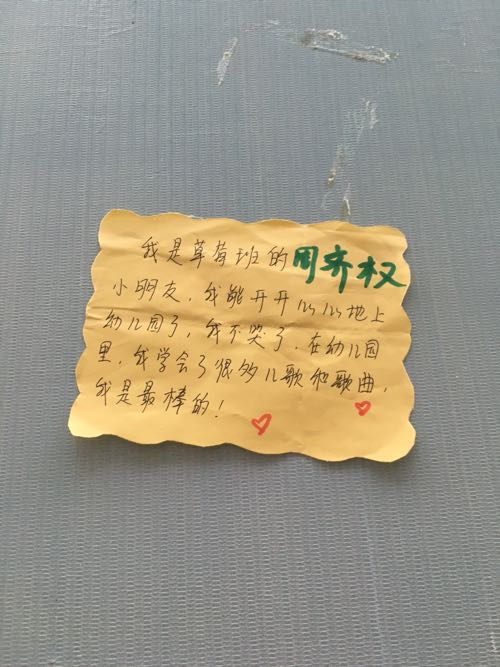 我是草莓班的周齐权
小朋友，我能开开心心地上
幼儿园了，我不哭了，在幼儿园
里，我学会了很多儿歌和歌曲，
我是最棒的！